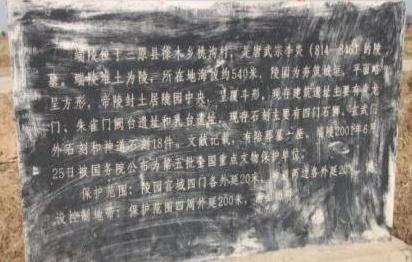 端陵位于三原县徐木乡桃沟村，是唐武宗李炎（814—846）的陵
墓。端陵堆土为陵，所在地海拔约540米，陵园为夯筑城垣，平面略
呈方形，帝陵封土居陵园中央，呈覆斗形，现存建筑遗址主要有
门、朱雀门阙台遗址和乳台遗址。现存石刻主要有四门石狮、玄武门
外石刻和神道石刻18件。文献记载，有陪葬墓一座。端陵2001年6月
25日被国务院公布为第五批全国重点文物保护单位。
保护范围：陵园宫城四门各外延20米，两边各外延20
设控制地带：保护范围四周外延200米